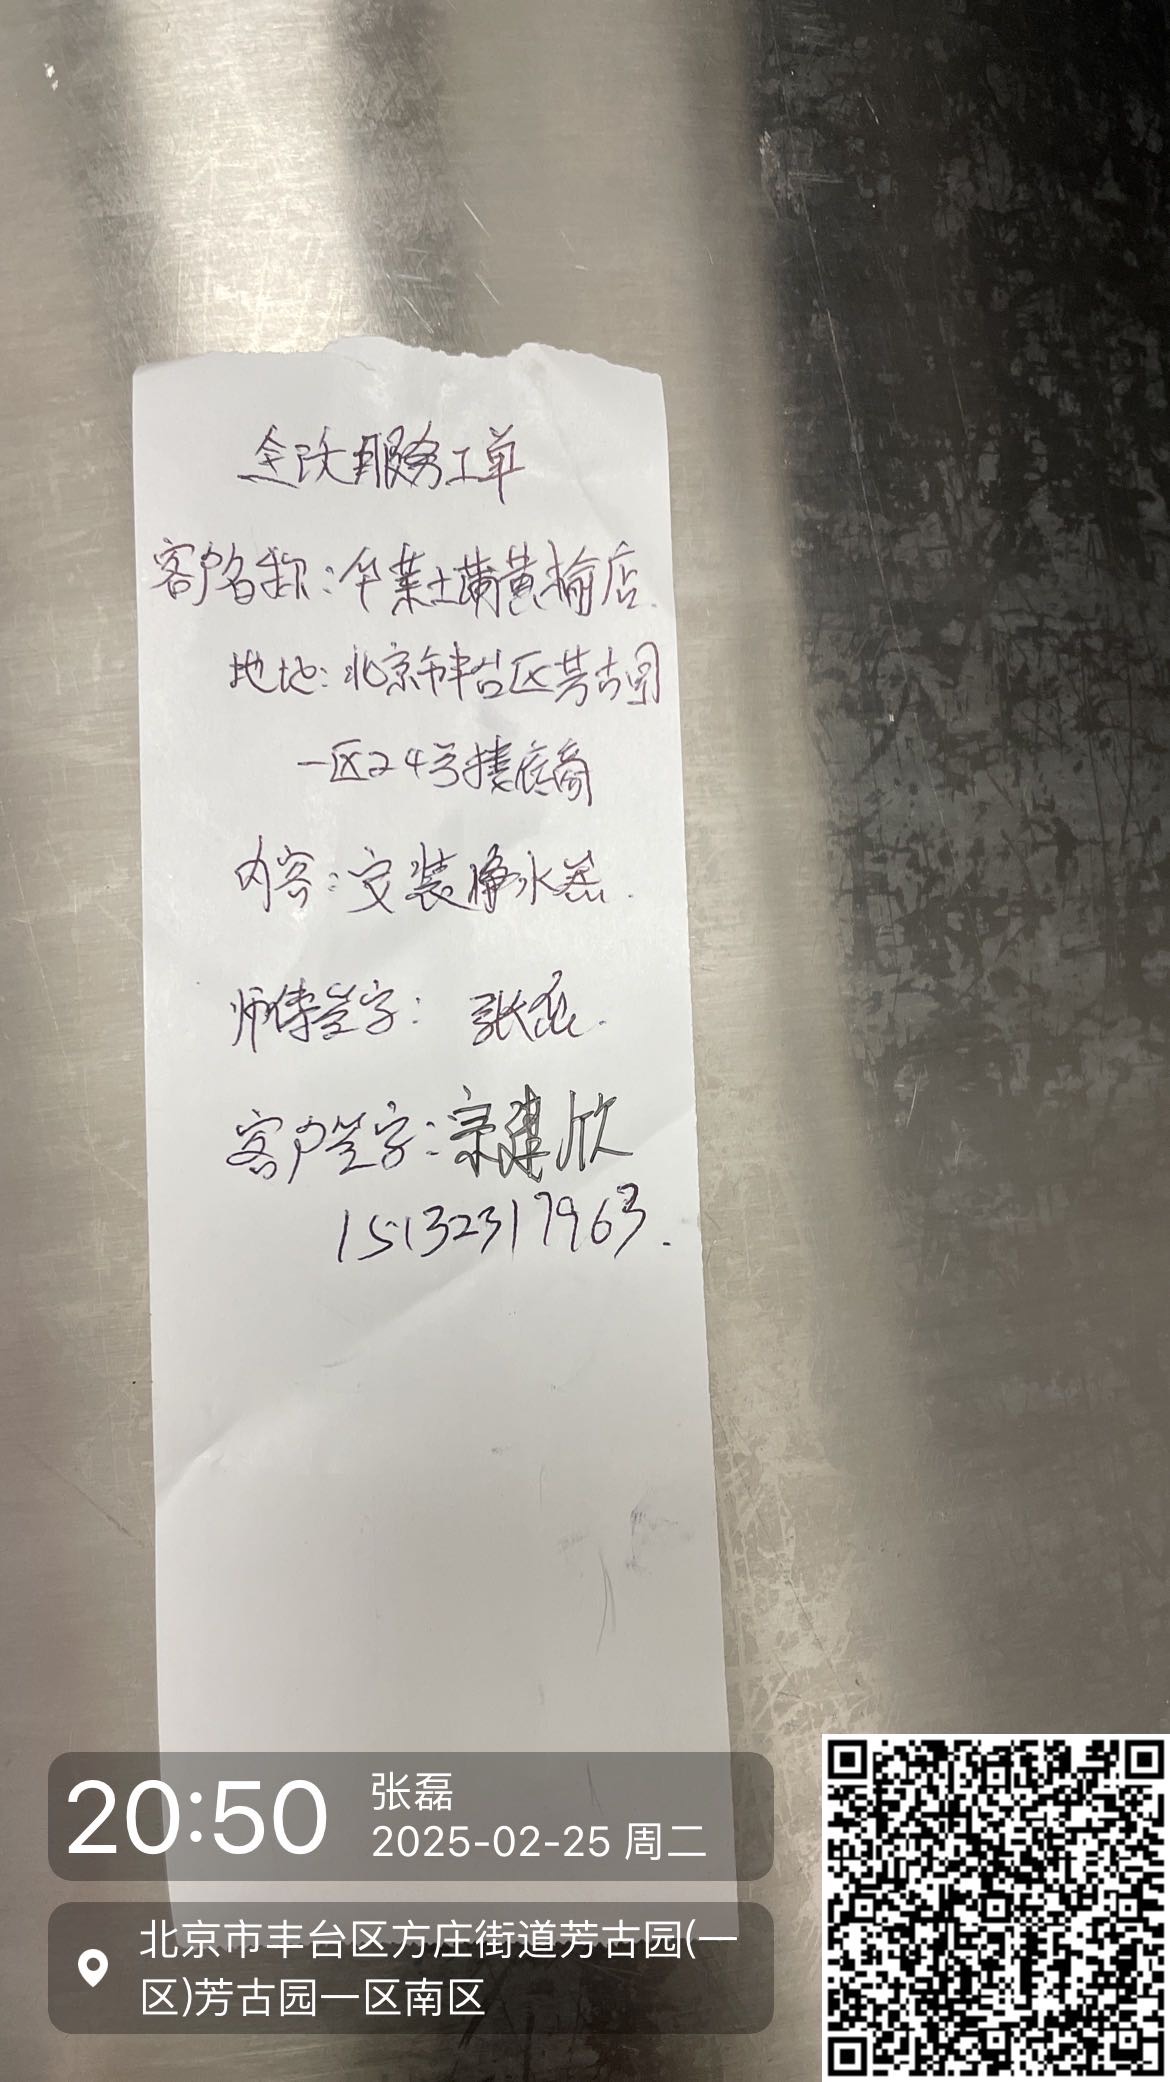 服务工单
客户名称：华莱士蒲黄榆店.
地址：北京市丰台区芳古园
一区24号楼底商
内容：安装净水器.
师傅签字： 张磊.
客户签字：宗建欣
15132317963.
20:50
张磊
2025-02-25 周二
北京市丰台区方庄街道芳古园(一
区)芳古园一区南区